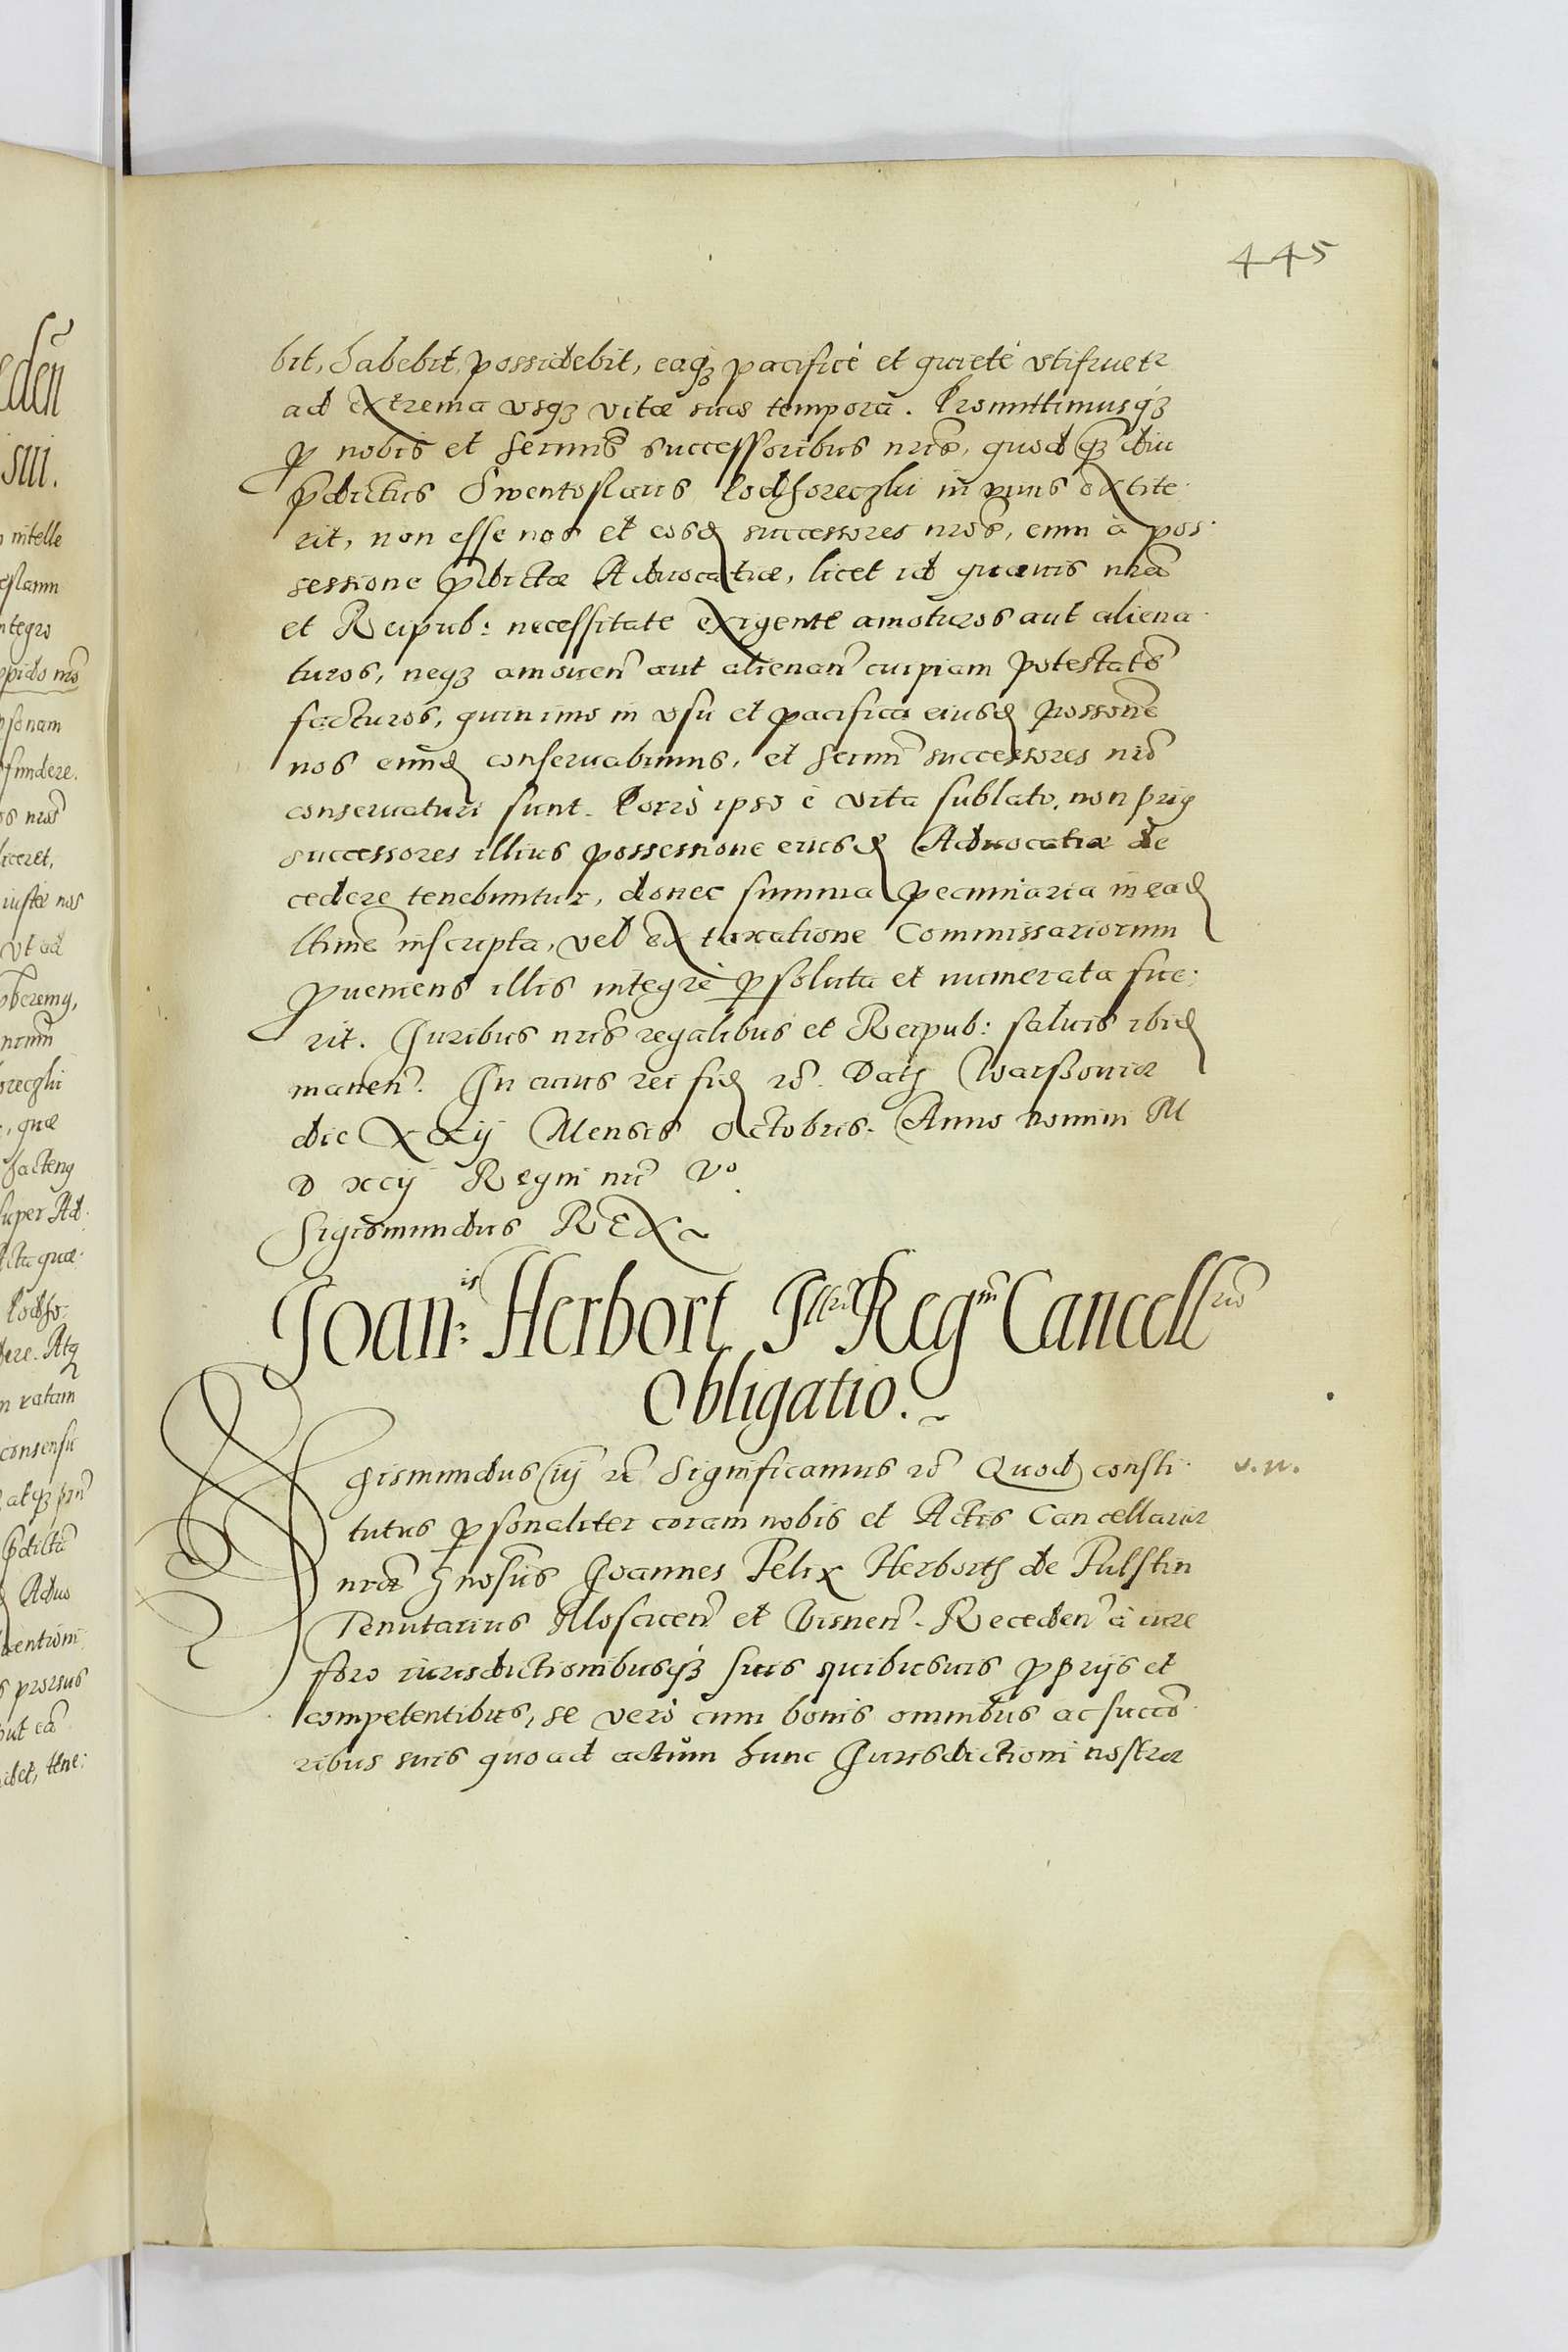 445
bit, habebit, possidebit, eaqȝ pacificè et quietè vtifruetr
ad extrema vsqȝ vitæ suæ tempora. Promittimusqȝ
p nobis et sermis successoribus nris, quod qȝdiu
pdictus Swentoslaus Podhoreczki in viuis extite-
rit, non esse nos et eosd successores nros, eum à pos-
sessione pdictæ Aduocatiæ, licet id quauis nra
et Reipub: necessitate exigente amoturos aut aliena-
turos, neqȝ amouen aut alienan cuipiam potestatē
facturos, quinimo in vsu et pacifica eiusd possone
nos eund conseruabimus, et sermi successores nri
conseruaturi sunt. Porrò ipso è vita sublato, non prig
successores illius possessione eiusd Aduocatiæ de
cedere tenebuntur, donec summa pecuniaria in ead
ltime inscripta, vel ex taxatione Commissariorum
pueniens illis integrè psoluta et numerata fue-
rit. Juribus nris regalibus et Reipub: saluis ibid
manen. In cuius rei fid rc. Dat Warssouiæ
die XXij Mensis Octobris. Anno Domini M
D xcij Regni nri Vo.
Sigismundus REX
Joanis: Herbort Illri Regm Cancell
Obligatio.
Sigismundus iij rc Significamus rc Quod consti-
tutus psonaliter coram nobis et Actis Cancellariæ
nræ Gnosus Joannes Felix Herborth de Fulstin
Tenutarius Moscicen et Visnen. Receden à iure
foro iurisdictionibusqȝ suis quibusuis pprijs et
competentibus, se verò cum bonis omnibus ac succo-
ribus suis quoad actum hunc Jurisdictioni nostræ